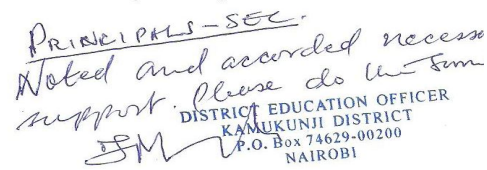 PRINCIPALS - SEC.
Noted and accorded necess
support. Please do the
DISTRICT EDUCATION OFFICER
KAMUKUNJI DISTRICT
P.O. Box 74629-00200
NAIROBI